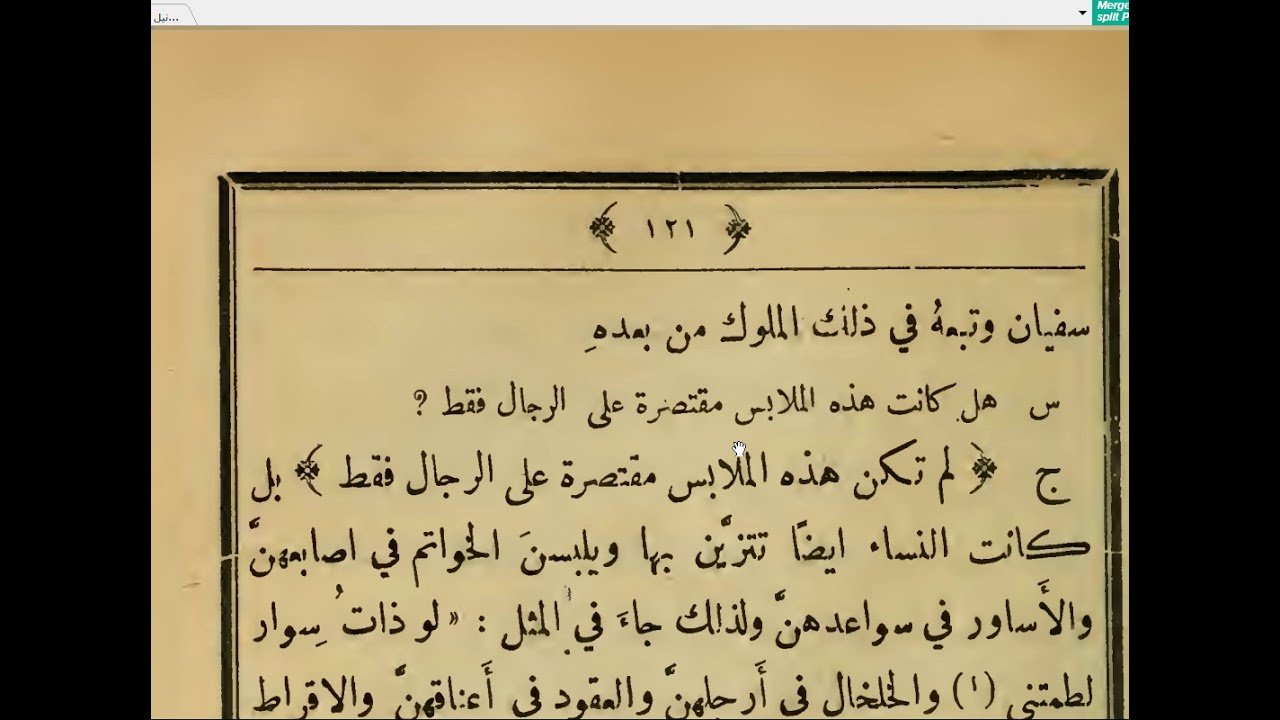 نيل...
Merge
split P
﴿ ١٢١ ﴾
سفيان وتبعهُ في ذلك الملوك من بعدهِ
س هل كانت هذه الملابس مقتصرة على الرجال فقط ?
ج ﴿ لم تكن هذه الملابس مقتصرة على الرجال فقط ﴾ بل
كانت النساء ايضًا تتزيَّن بها ويلبسنَ الخواتم في اصابعهنَّ
والأَساور في سواعدهنَّ ولذلك جاءَ في المثل : « لو ذاتُ سِوار
لطمتني (١) والخلخال في أَرجلهنَّ والعقود في أَعناقهنَّ والاقراط